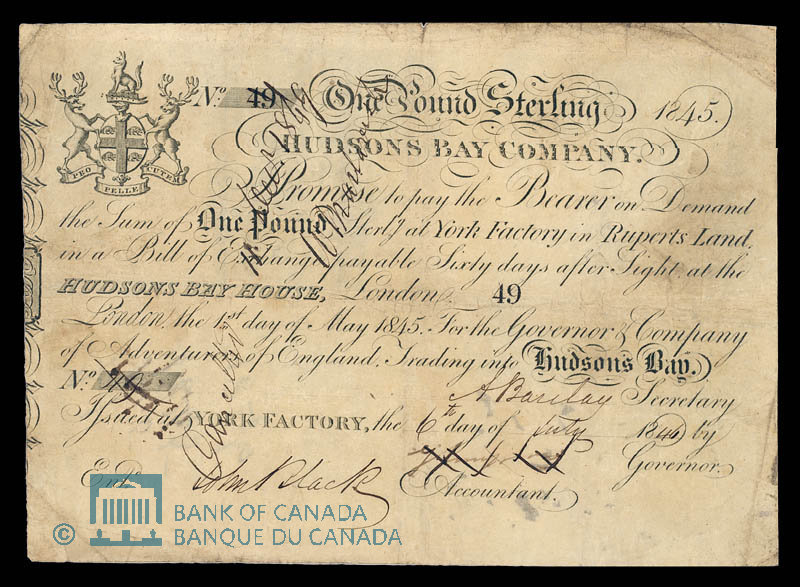 No. 49 One Pound Sterling 1845.
HUDSONS BAY COMPANY.
PRO PELLE CUTEM
Promise to pay the Bearer on Demand
the Sum of One Pound Sterlg at York Factory in Ruperts Land,
in a Bill of Exchange payable Sixty days after Sight at the
HUDSONS BAY HOUSE, London. 49
London, the 1st day of May 1845. For the Governor & Company
of Adventurers of England, Trading into Hudsons Bay.
No. 49 A Barclay Secretary
Issued at YORK FACTORY, the 6th day of July 1846 by
Governor.
Entd. John Black Accountant.
© BANK OF CANADA
BANQUE DU CANADA